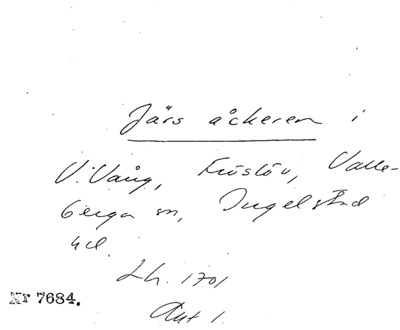 Järs åckeren i
V. Vång, Fröslöv, Valle-
berga sn, Ingelstad
hd.
Lh. 1701
Nr 7684.
Akt 1.